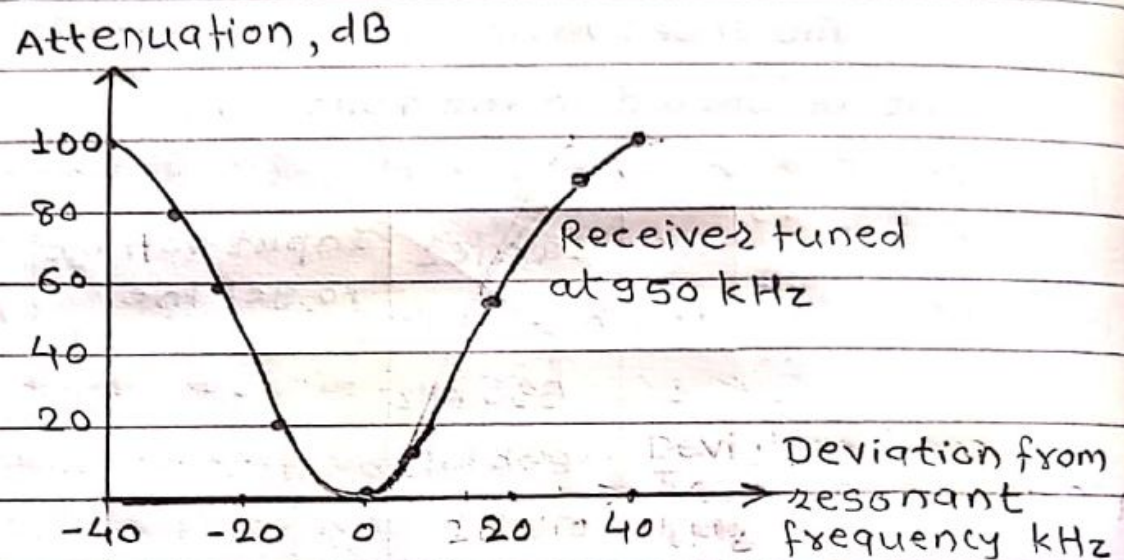 Attenuation, dB
100
80
60
40
20
Receiver tuned
at 950 kHz
Deviation from
resonant
frequency kHz
-40 -20 0 20 40